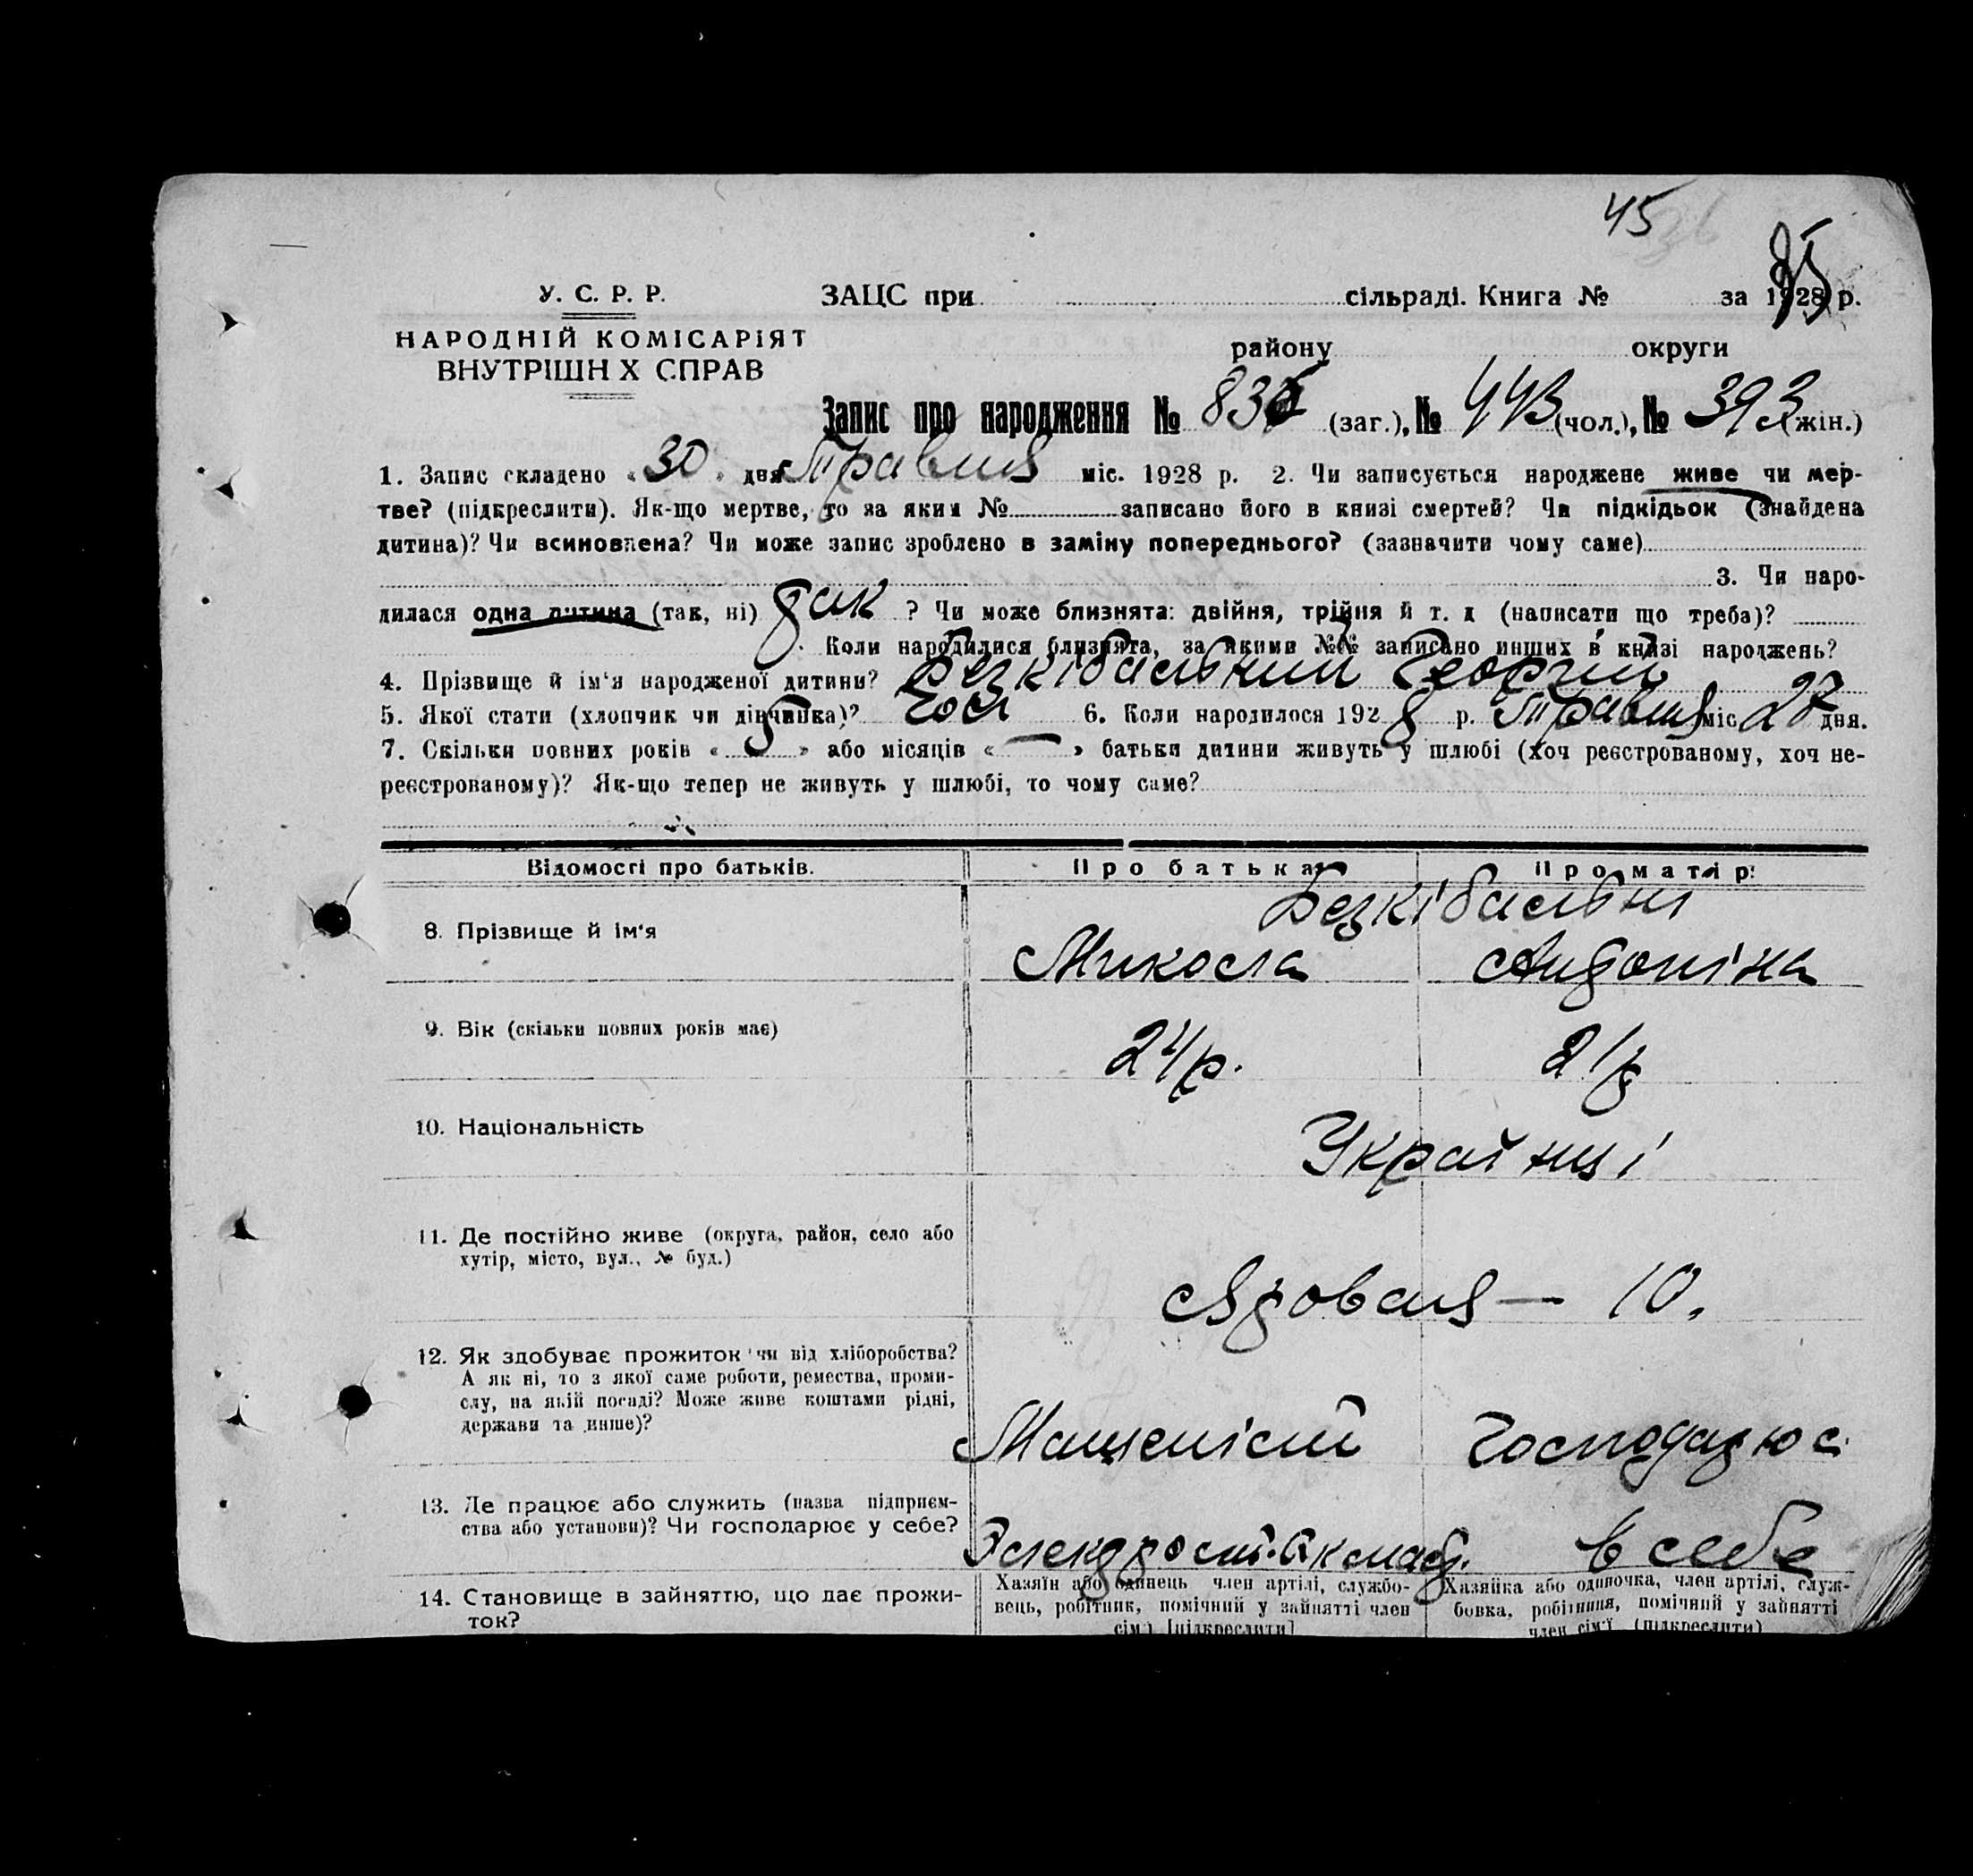 45
95
У. С. Р. Р.
НАРОДНІЙ КОМІСАРІЯТ
ВНУТРІШН Х СПРАВ
ЗАЦС при сільраді. Книга № за 1928 р.
району округи
Запис про народження № 836 (заг.), № 443 (чол.), № 393 (жін.)
1. Запис складено « 30 » дня Травня міс. 1928 р. 2. Чи записується народжене живе чи мер-
тве? (підкреслити). Як-що мертве, то за яким № записано його в книзі смертей? Чи підкідьок (знайдена
дитина)? Чи всиновлена? Чи може запис зроблено в заміну попереднього? (зазначити чому саме)
3. Чи наро-
дилася одна дитина (так, ні) так ? Чи може близнята: двійня, трійня й т. д (написати що треба)?
Коли народилися близнята, за якими №№ записано инших в книзі народжень?
4. Прізвище й ім'я народженої дитини? Безкібальний Георгій
5. Якої стати (хлопчик чи дівчинка)? 6. Коли народилося 1928 р. Травня міс 27 дня.
7. Скільки повних років « » або місяців « — » батьки дитини живуть у шлюбі (хоч реєстрованому, хоч не-
реєстрованому)? Як-що тепер не живуть у шлюбі, то чому саме?
Відомості про батьків. Про батька: Про матір:
Безкібальні
8. Прізвище й ім'я Микола Антоніна
9. Вік (скільки повних років має) 24р. 21р
10. Національність Українці
11. Де постійно живе (округа, район, село або
хутір, місто, вул., № буд.)
— 10.
12. Як здобуває прожиток чи від хліборобства?
А як ні, то з якої саме роботи, ремества, проми-
слу, на якій посаді? Може живе коштами рідні,
держави та инше)?
Машиніст Господарює
13. Де працює або служить (назва підприєм-
ства або установи)? Чи господарює у себе?
в себе
14. Становище в зайняттю, що дає прожи-
ток?
Хазяїн або одинець член артілі, службо-
вець, робітник, помічний у зайнятті член
сім'ї [підкреслити]
Хазяйка або одиночка, член артілі, служ-
бовка, робітниця, помічний у зайнятті
член сім'ї (підкреслити)